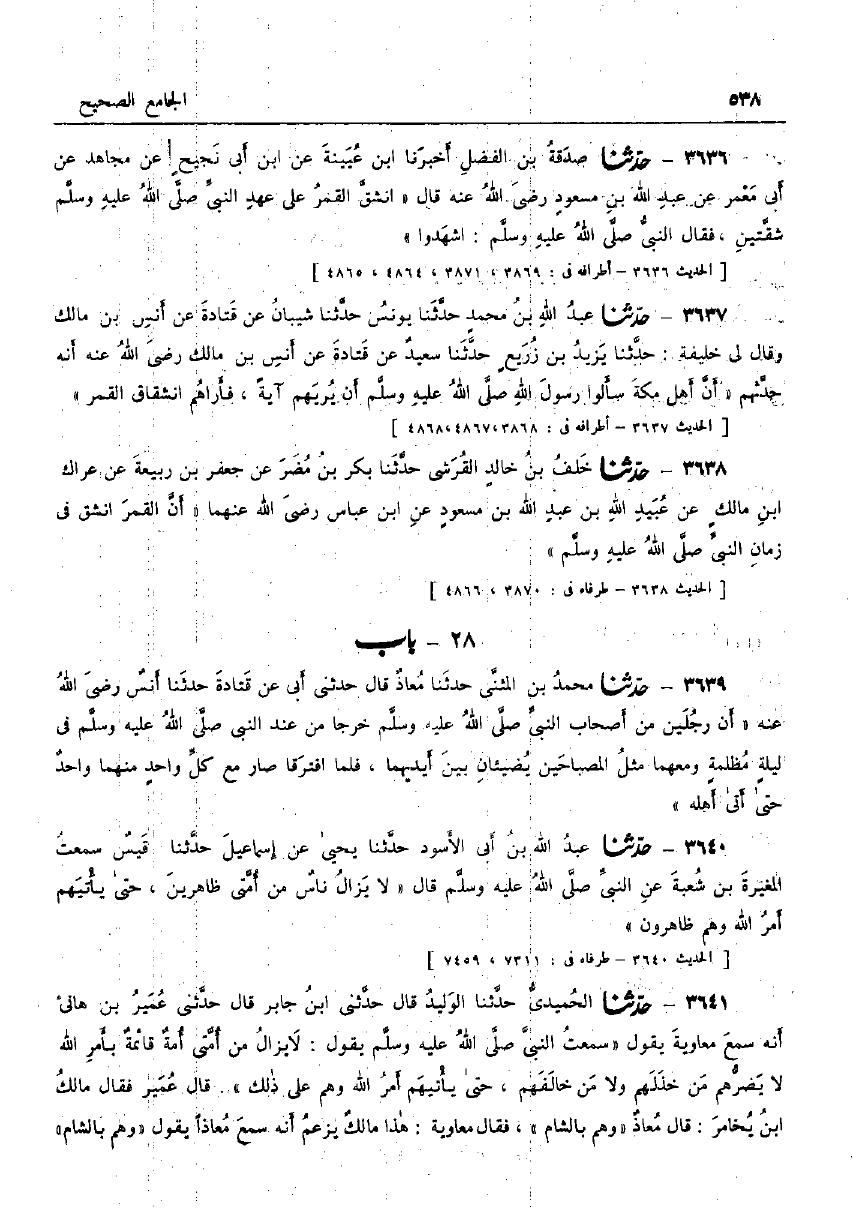 ٥٣٨ الجامع الصحيح
٣٦٣٦ – حدّثنا صدَقةُ بن الفضلِ أخبرَنا ابن عُيَينةَ عن ابن أبى نَجيح عن مجاهد عن
أبى مَعْمر عن عبدِ الله بنِ مسعودٍ رضىَ اللهُ عنه قال « انشقَّ القمرُ على عهدِ النبىِّ صلَّى اللهُ عليهِ وسلَّم
شقَّتينِ ، فقال النبىُّ صلَّى اللهُ عليهِ وسلَّم : اشهَدوا »
[ الحديث ٣٦٣٦ – أطرافه فى : ٣٨٦٩ ، ٣٨٧١ ، ٤٨٦٤ ، ٤٨٦٥ ]
٣٦٣٧ – حدّثنا عبدُ اللهِ بنُ محمدٍ حدَّثَنا يونسُ حدَّثنا شيبانُ عن قتادةَ عن أنسِ بن مالك
وقال لى خليفة : حدَّثَنا يَزيدُ بن زُرَيعٍ حدَّثَنا سعيدٌ عن قتادةَ عن أنسِ بن مالك رضىَ اللهُ عنه أنه
حدَّثهم « أنَّ أهلَ مكةَ سألوا رسولَ اللهِ صلَّى اللهُ عليهِ وسلَّم أن يُريَهم آيةً ، فأراهُم انشقاق القمر »
[ الحديث ٣٦٣٧ – أطرافه فى : ٣٨٦٨،٤٨٦٧،٤٨٦٨ ]
٣٦٣٨ – حدّثنا خَلفُ بنُ خالدٍ القُرَشى حدَّثَنا بكر بنُ مُضَرَ عن جعفر بن ربيعةَ عن عراك
ابنِ مالكٍ عن عُبَيدِ اللهِ بن عبدِ الله بن مسعودٍ عنِ ابن عباس رضىَ الله عنهما « أنَّ القمرَ انشق فى
زمانِ النبىِّ صلَّى اللهُ عليهِ وسلَّم »
[ الحديث ٣٦٣٨ – طرفاه فى : ٣٨٧٠ ، ٤٨٦٦ ]
٢٨ – باب
٣٦٣٩ – حدّثنا محمدُ بن المثنَّى حدثَنا مُعاذٌ قال حدثنى أبى عن قَتادةَ حدثَنا أنَسٌ رضىَ اللهُ
عنه « أن رجُلَين من أصحاب النبىِّ صلَّى اللهُ عليه وسلَّم خرجا من عند النبى صلَّى اللهُ عليه وسلَّم فى
ليلةٍ مُظلمةٍ ومعهما مثلُ المصباحَين يُضيئانِ بينَ أيديهما ، فلما افترَقا صار مع كلِّ واحدٍ منهما واحدٌ
حتىٰ أتىٰ أهله »
٣٦٤٠ – حدّثنا عبدُ الله بنُ أبى الأسود حدَّثنا يحيىٰ عن إسماعيلَ حدَّثنا قَيسٌ سمعتُ
المغيرةَ بن شُعبةَ عنِ النبىِّ صلَّى اللهُ عليه وسلَّم قال « لا يَزالُ ناسٌ من أُمَّتى ظاهرينَ ، حتىٰ يأْتيَهم
أمرُ الله وهم ظاهرون »
[ الحديث ٣٦٤٠ – طرفاه فى : ٧٣١١ ، ٧٤٥٩ ]
٣٦٤١ – حدّثنا الحُميدىُّ حدَّثَنا الوَليدُ قال حدَّثنى ابنُ جابر قال حدَّثنى عُمَيرُ بن هانئ
أنه سمعَ معاويةَ يقول « سمعتُ النبىَّ صلَّى اللهُ عليه وسلَّم يقول : لَايزالُ من أُمَّتى أُمةٌ قائمةٌ بأمرِ الله
لا يَضرُّهم مَن خذَلَهم ولا مَن خالَفَهم ، حتىٰ يأْتيَهم أمرُ الله وهم على ذٰلك » . قال عُمَير فقال مالكُ
ابنُ يُخامرَ : قال مُعاذٌ « وهم بالشام » ، فقال معاوية : هٰذا مالكٌ يزعمُ أنه سمعَ مُعاذاً يقول « وهم بالشام »